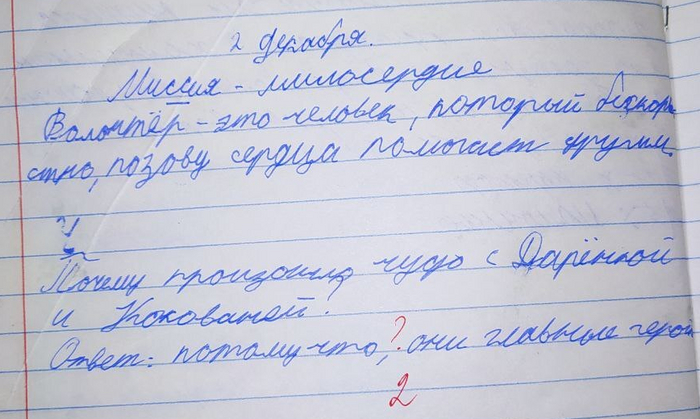 2 декабря.
Миссия - милосердие
Волонтёр - это человек, который бескоры
стно, по зову сердца помогает другим.
Ч
Почему произошло чудо с Дарёнкой
и Кокованей?
Ответ: потому что, ? они главные герои
2